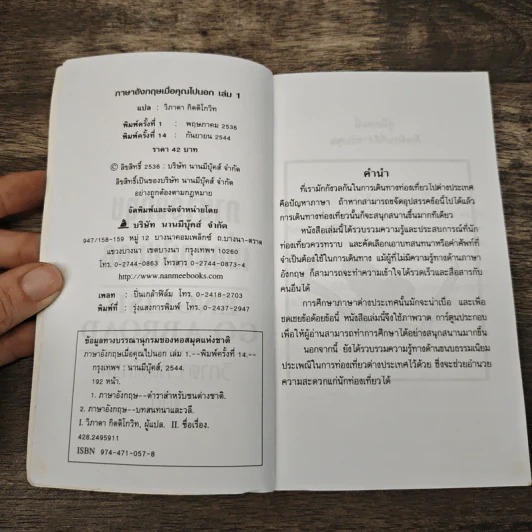 ภาษาอังกฤษเมื่อคุณไปนอก เล่ม 1
แปล : วิภาดา กิตติโกวิท
พิมพ์ครั้งที่ 1 : พฤษภาคม 2536
พิมพ์ครั้งที่ 14 : กันยายน 2544
ราคา 42 บาท
© ลิขสิทธิ์ 2536 : บริษัท นานมีบุ๊คส์ จำกัด
ลิขสิทธิ์เป็นของบริษัท นานมีบุ๊คส์ จำกัด
อย่างถูกต้องตามกฎหมาย
จัดพิมพ์และจัดจำหน่ายโดย
บริษัท นานมีบุ๊คส์ จำกัด
947/158-159 หมู่ 12 บางนาคอมเพล็กซ์ ถ.บางนา-ตราด
แขวงบางนา เขตบางนา กรุงเทพฯ 10260
โทร. 0-2744-0863 โทรสาร 0-2744-0873-4
http://www.nanmeebooks.com
เพลท : ปิ่นเกล้าฟิล์ม โทร. 0-2418-2703
พิมพ์ที่ : รุ่งแสงการพิมพ์ โทร. 0-2437-2947
ข้อมูลทางบรรณานุกรมของหอสมุดแห่งชาติ
ภาษาอังกฤษเมื่อคุณไปนอก เล่ม 1.--พิมพ์ครั้งที่ 14.--
กรุงเทพฯ : นานมีบุ๊คส์, 2544.
192 หน้า.
1. ภาษาอังกฤษ--ตำราสำหรับชนต่างชาติ.
2. ภาษาอังกฤษ--บทสนทนาและวลี.
I. วิภาดา กิตติโกวิท, ผู้แปล. II. ชื่อเรื่อง.
428.2495911
ISBN 974-471-057-8
คำนำ
ที่เรามักกังวลกันในการเดินทางท่องเที่ยวไปต่างประเทศ
คือปัญหาภาษา ถ้าหากสามารถขจัดอุปสรรคข้อนี้ไปได้แล้ว
การเดินทางท่องเที่ยวนั้นก็จะสนุกสนานขึ้นมากทีเดียว
หนังสือเล่มนี้ได้รวบรวมความรู้และประสบการณ์ที่นัก
ท่องเที่ยวควรทราบ และคัดเลือกเอาบทสนทนาหรือคำศัพท์ที่
จำเป็นต้องใช้ในการเดินทาง แม้ผู้ที่ไม่มีความรู้ทางด้านภาษา
อังกฤษ ก็สามารถจะทำความเข้าใจได้รวดเร็วและสื่อสารกับ
คนอื่นได้
การศึกษาภาษาต่างประเทศนั้นมักจะน่าเบื่อ และเพื่อ
ชดเชยข้อด้อยข้อนี้ หนังสือเล่มนี้จึงใช้ภาพวาด การ์ตูนประกอบ
เพื่อให้ผู้อ่านสามารถทำการศึกษาได้อย่างสนุกสนานมากขึ้น
นอกจากนี้ ยังได้รวบรวมความรู้ทางด้านขนบธรรมเนียม
ประเพณีในการท่องเที่ยวต่างประเทศไว้ด้วย ซึ่งจะช่วยอำนวย
ความสะดวกแก่นักท่องเที่ยวได้